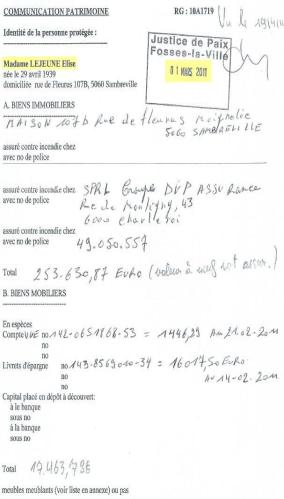 COMMUNICATION PATRIMOINE RG : 10A1719 Vu le 19/4/11
Identité de la personne protégée :
Justice de Paix
Fosses-la-Ville
01 MARS 2011
Madame LEJEUNE Elise
née le 29 avril 1939
domiciliée rue de Fleurus 107B, 5060 Sambreville
A. BIENS IMMOBILIERS
MAISON 107b Rue de fleurus
5060 SAMBREVILLE
assuré contre incendie chez
avec no de police
assuré contre incendie chez SPRL Groupe DVP ASSURance
avec no de police Rue de Montigny, 43
6000 Charleroi
assuré contre incendie chez
avec no de police 49.050.557
Total 253.630,87 EURO (valeur à neuf assur.)
B. BIENS MOBILIERS
En espèces
Compte VUE no 142-0651868-53 = 1446,29 Au 21-02-2011
no
no
Livrets d'épargne no 143-8569010-34 = 16017,50 EURO
no Au 14-02-2011
no
Capital placé en dépôt à découvert:
à le banque
sous no
à la banque
sous no
Total 17.463,79€
meubles meublants (voir liste en annexe) ou pas